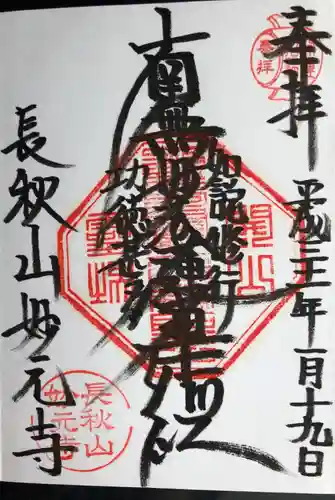 奉拝
平成三十一年一月十九日
如説修行
南無妙法蓮華経
功徳甚多
長秋山妙元寺
長秋山
妙元寺